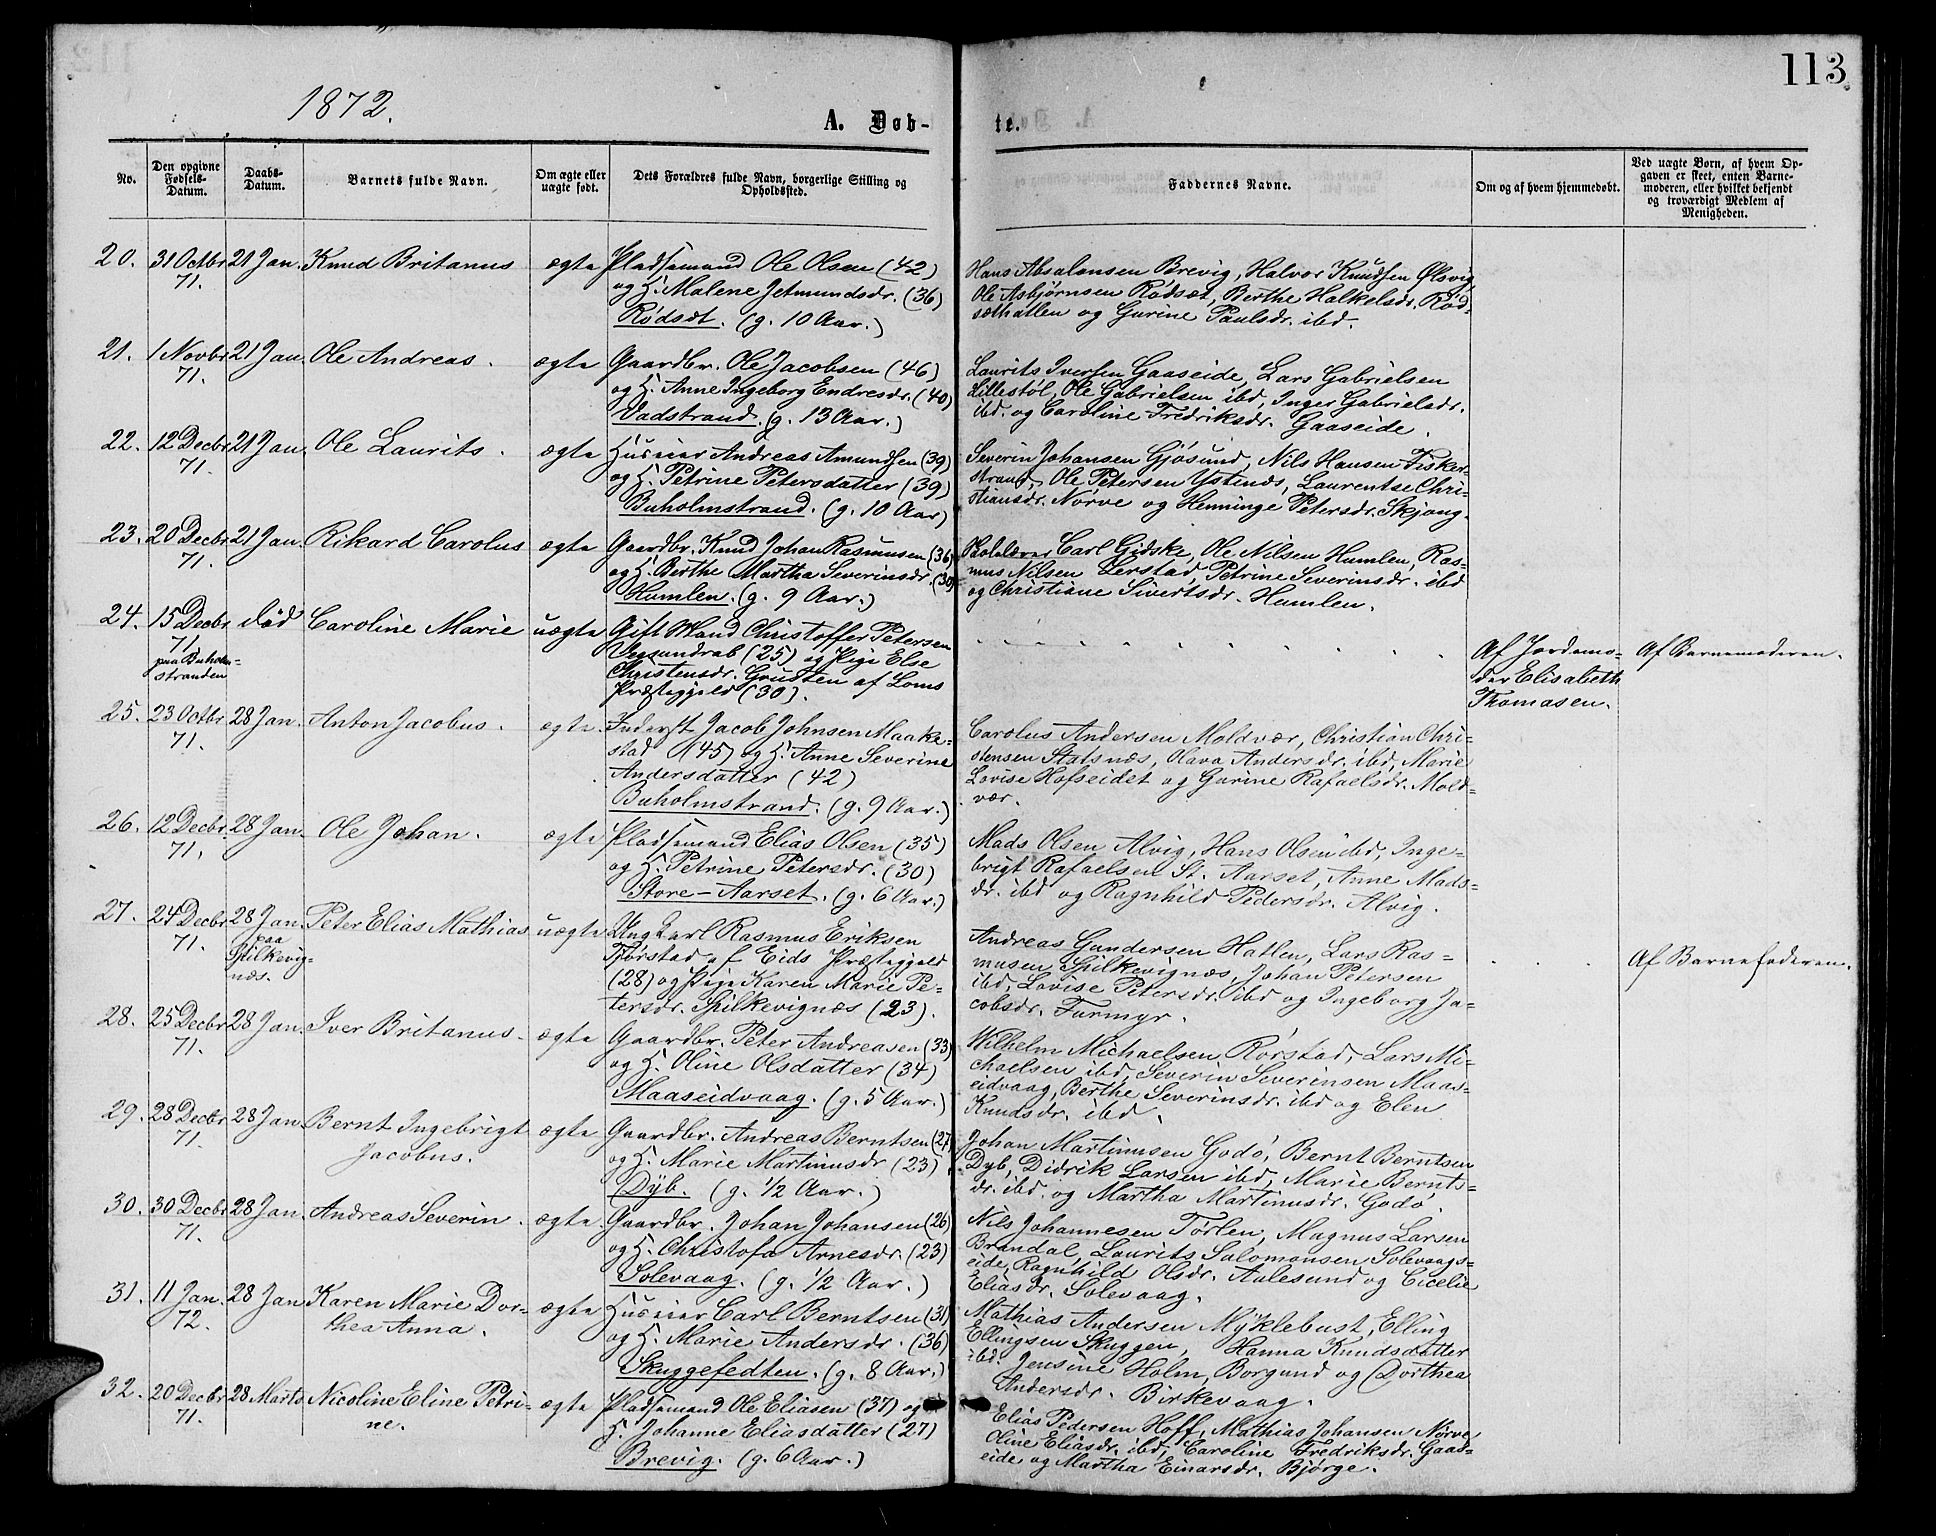 113
1872.
A. Døb-
te.
No.
Den opgivne Fødsels-Datum.
Daabs-Datum.
Barnets fulde Navn.
Om ægte eller uægte født.
Dets Forældres fulde Navn, borgerlige Stilling og Opholdssted.
Faddernes Navne.
Om og af hvem hjemmedøbt.
Ved uægte Børn, af hvem Opgaven er skeet, enten Barnemoderen, eller hvilket bekjendt og troværdigt Medlem af Menigheden.
20. 31 Octbr 71. 21 Jan. Knud Britanus ægte
Pladsemand Ole Olsen (42)
og H. Malene Jetmundsdr. (36)
Rødsæt. (g. 10 Aar.)
Hans Absalonsen Brevig, Halvor Knudsen Ølsvig,
Ole Asbjørnsen Rødsæt, Berthe Halkelsdr. Rød-
sæthatlen og Gurine Paulsdr. ibd.
21. 1 Novbr 71. 21 Jan. Ole Andreas. ægte
Gaardbr. Ole Jacobsen (46)
og H. Anne Ingeborg Endresdr. (40)
Vadstrand. (g. 13 Aar.)
Laurits Iversen Gaaseide, Lars Gabrielsen
Lillestøl, Ole Gabrielsen ibd, Inger Gabrielsdr.
ibd. og Caroline Fredriksdr. Gaaseide.
22. 12 Decbr 71. 21 Jan. Ole Laurits. ægte
Huseier Andreas Amundsen (39)
og H. Petrine Petersdatter (39)
Buholmstrand. (g. 10 Aar)
Severin Johansen Gjøsund, Nils Hansen Fisker-
strand, Ole Petersen Ystenæs, Laurentse Chri-
stiansdr. Nørve og Henninge Petersdr. Skjong.
23. 20 Decbr 71. 21 Jan. Rikard Carolus ægte
Gaardbr. Knud Johan Rasmusen (36)
og H. Berthe Martha Severinsdr. (30)
Humlen. (g. 9 Aar.)
Skolelærer Carl Gidske, Ole Nilsen Humlen, Ras-
mus Nilsen Lerstad, Petrine Severinsdr. ibd
og Christiane Sivertsdr. Humlen.
24. 15 Decbr 71 paa Buholm-
stranden død Caroline Marie uægte
Gift Mand Christoffer Petersen
Vegsundrab (25) og Pige Else
Christensdr. Grudsten af Loms
Præstegjeld (30).
Af Jordemo-
der Elisabeth
Thomasen.
Af Barnemoderen.
25. 23 Octbr 71. 28 Jan. Anton Jacobus. ægte.
Inderst Jacob Johnsen Maake-
stad (45) og H. Anne Severine
Andersdatter (42)
Buholmstrand. (g. 9 Aar.)
Carolus Andersen Moldvær, Christian Chri-
stensen Statsnæs, Olava Andersdr. ibd, Marie
Lovise Hofseidet og Gurine Rafaelsdr. Mold-
vær.
26. 12 Decbr. 71. 28 Jan. Ole Johan. ægte
Pladsemand Elias Olsen (35)
og H. Petrine Petersdr. (30)
Store-Aarset. (g. 6 Aar.)
Mads Olsen Alvig, Hans Olsen ibd, Inge-
brigt Rafaelsen St. Aarset, Anne Mads-
dr. ibd og Ragnhild Pedersdr. Alvig.
27. 24 Decbr 71. 28 Jan. paa
Spilkevig-
næs. Peter Elias Mathias uægte
Ung Karl Rasmus Eriksen
Tjørstad af Eids Præstegjeld
(28) og Pige Karen Marie Pe-
tersdr. Spilkevignæs (23).
Andreas Gundersen Hatlen, Lars Ras-
musen Spilkevignæs, Johan Petersen
ibd, Lovise Petersdr. ibd og Ingeborg Ja-
cobsdr. Furmyr.
Af Barnefaderen.
28. 25 Decbr 71. 28 Jan. Iver Britanus. ægte
Gaardbr. Peter Andreasen (33)
og H. Oline Olsdatter (34)
Maaseidvaag. (g. 5 Aar.)
Wilhelm Michaelsen Rørstad, Lars Mi-
chaelsen ibd, Severin Severinsen Maas-
eidvaag, Berthe Severinsdr. ibd og Elen
Knudsdr. ibd.
29. 28 Decbr 71. 28 Jan. Bernt Ingebrigt
Jacobus. ægte
Gaardbr. Andreas Berntsen (27)
og H. Marie Martinusdr (23)
Dyb. (g. 1/2 Aar.)
Johan Martinusen Godø, Bernt Berntsen
Dyb, Didrik Larsen ibd, Marie Bernts-
dr. ibd. og Martha Martinusdr. Godø.
30. 30 Decbr 71. 28 Jan. Andreas Severin. ægte
Gaardbr. Johan Johansen (26)
og H. Christofa Arnesdr. (23)
Solevaag. (g. 1/2 Aar.)
Nils Johannesen Tørlen, Magnus Larsen
Brandal, Laurits Salomonsen Solevaags-
eide, Ragnhild Olsdr. Aalesund og Cicelie
Eliasdr. Solevaag.
31. 11 Jan. 72. 28 Jan Karen Marie Dor-
thea Anna. ægte
Huseier Carl Berntsen (31)
og H. Marie Andersdr. (36)
Skuggefedten. (g. 8 Aar.)
Mathias Andersen Myklebust, Elling
Ellingsen Skuggen, Hanna Knudsdatter
ibd. Jensine Holm, Borgund og Dorthea
Andersdr. Birkevaag.
32. 20 Decbr 71. 28 Marts Nicoline Eline Petri-
ne. ægte
Pladsemand Ole Eliasen (37) og
H. Johanne Eliasdatter (27)
Brevig. (g. 6 Aar.)
Elias Pedersen Hoff, Mathias Johansen Nørve,
Oline Eliasdr. ibd, Caroline Fredriksdr. Gaas-
eide og Martha Einarsdr. Bjørge.